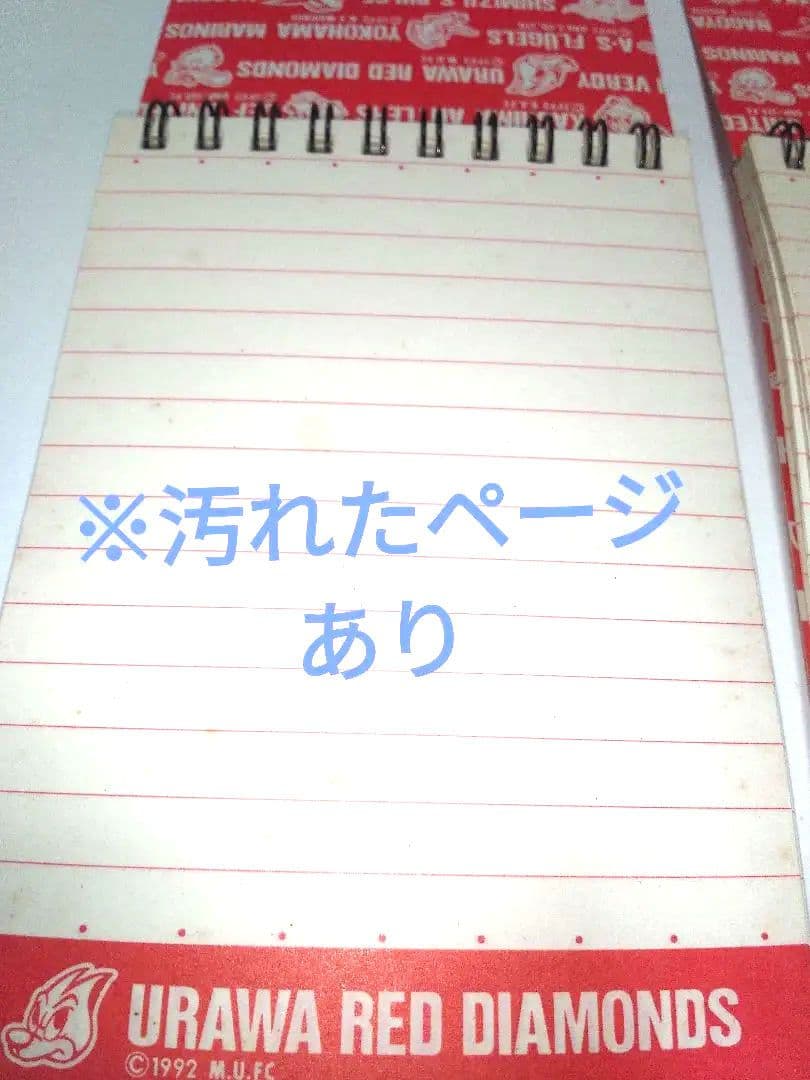 YOKOHAMA MARINOS
A·S FLÜGELS
URAWA RED DIAMONDS
VERDY
NAGOYA
MARINOS
※汚れたページ
あり
URAWA RED DIAMONDS
©1992 M.U.FC